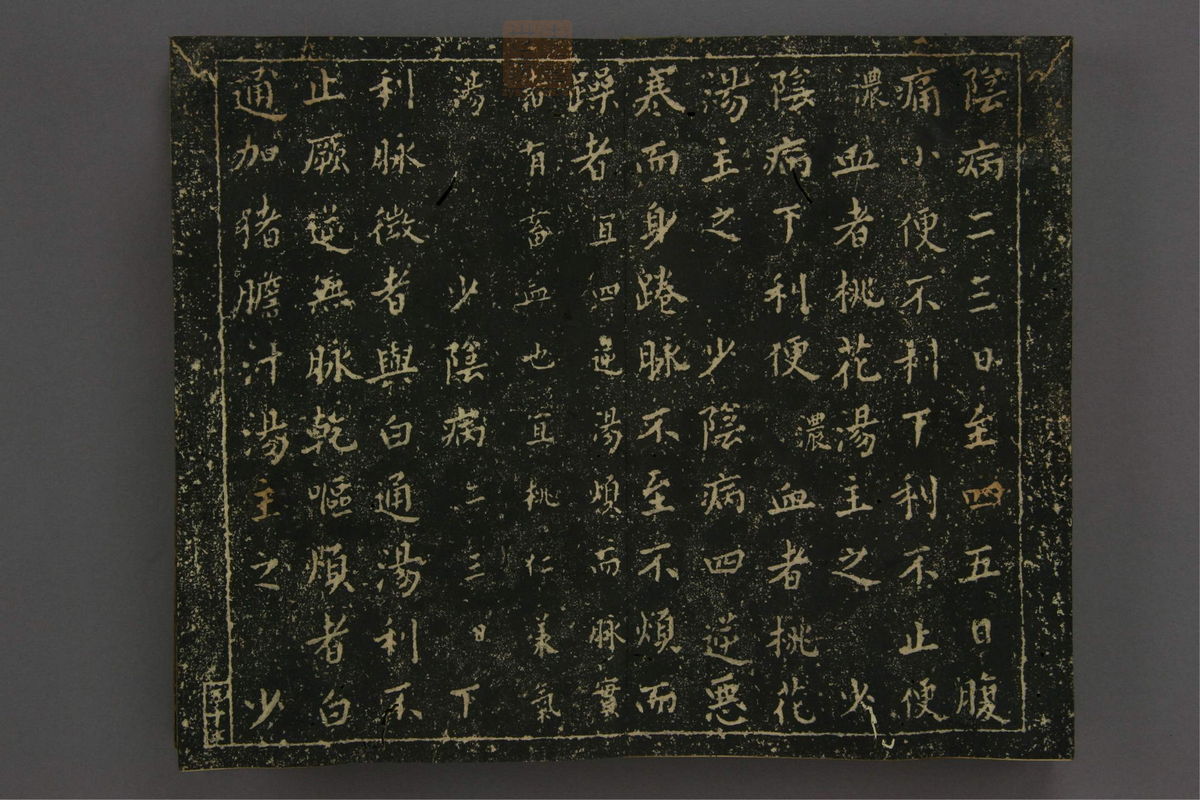 陰病二三日至四五日腹
痛小便不利下利不止便
濃血者桃花湯主之少
陰病下利便濃血者桃花
湯主之少陰病四逆惡
寒而身踡脉不至不煩而
躁者宜四逆湯煩而脉實
若有畜血也宜桃仁承氣
湯少陰病二三日下
利脉微者與白通湯利不
止厥逆無脉乾嘔煩者白
通加猪膽汁湯主之少